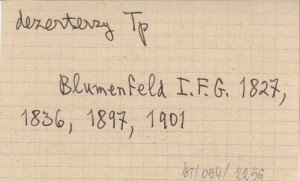 dezerterzy Tp
Blumenfeld I.F.G. 1827,
1836, 1897, 1901
IST/054/2256